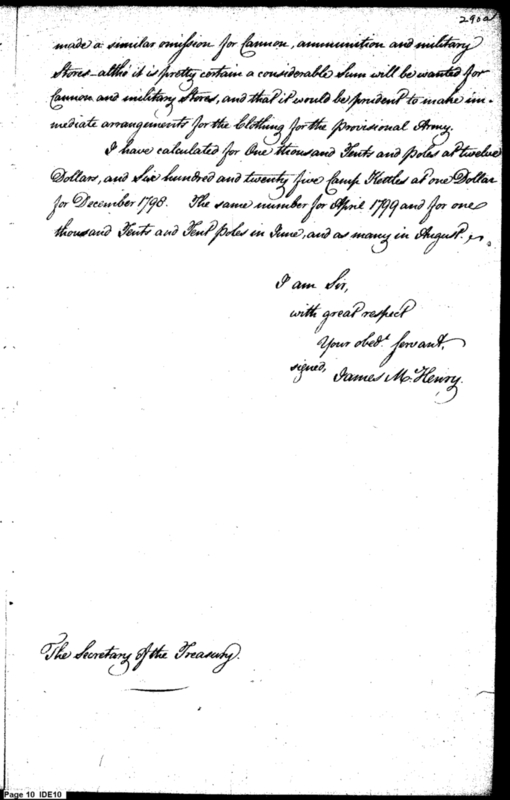 290a
made a similar omission for Cannon, ammunition and military
Stores – altho' it is pretty certain a considerable Sum will be wanted for
Cannon and military Stores, and that it would be prudent to make im-
mediate arrangements for the Clothing for the provisional Army.
I have calculated for One thousand Tents and poles at twelve
Dollars, and Six hundred and twenty five Camp Kettles at one Dollar
for December 1798. The same number for April 1799 and for one
thousand Tents and Tent poles in June, and as many in August.
I am Sir,
with great respect
Your obed.t Servant,
signed,
James McHenry.
The Secretary of the Treasury.
Page 10 IDE10